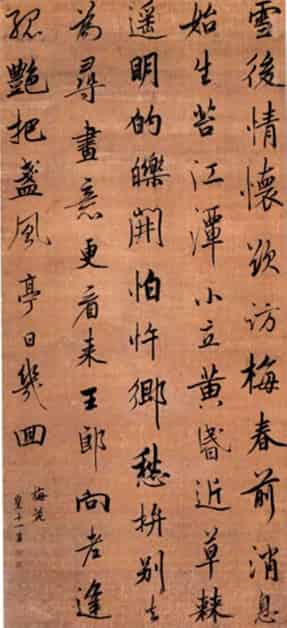 雪後情懷欲訪梅春前消息
始生苔江潭小立黃昏近草棘
遥明的皪開怕忤鄉愁拚別去
為尋畫意更看来王郎向老逢
艷把盞風亭日幾回
梅花
皇十一子